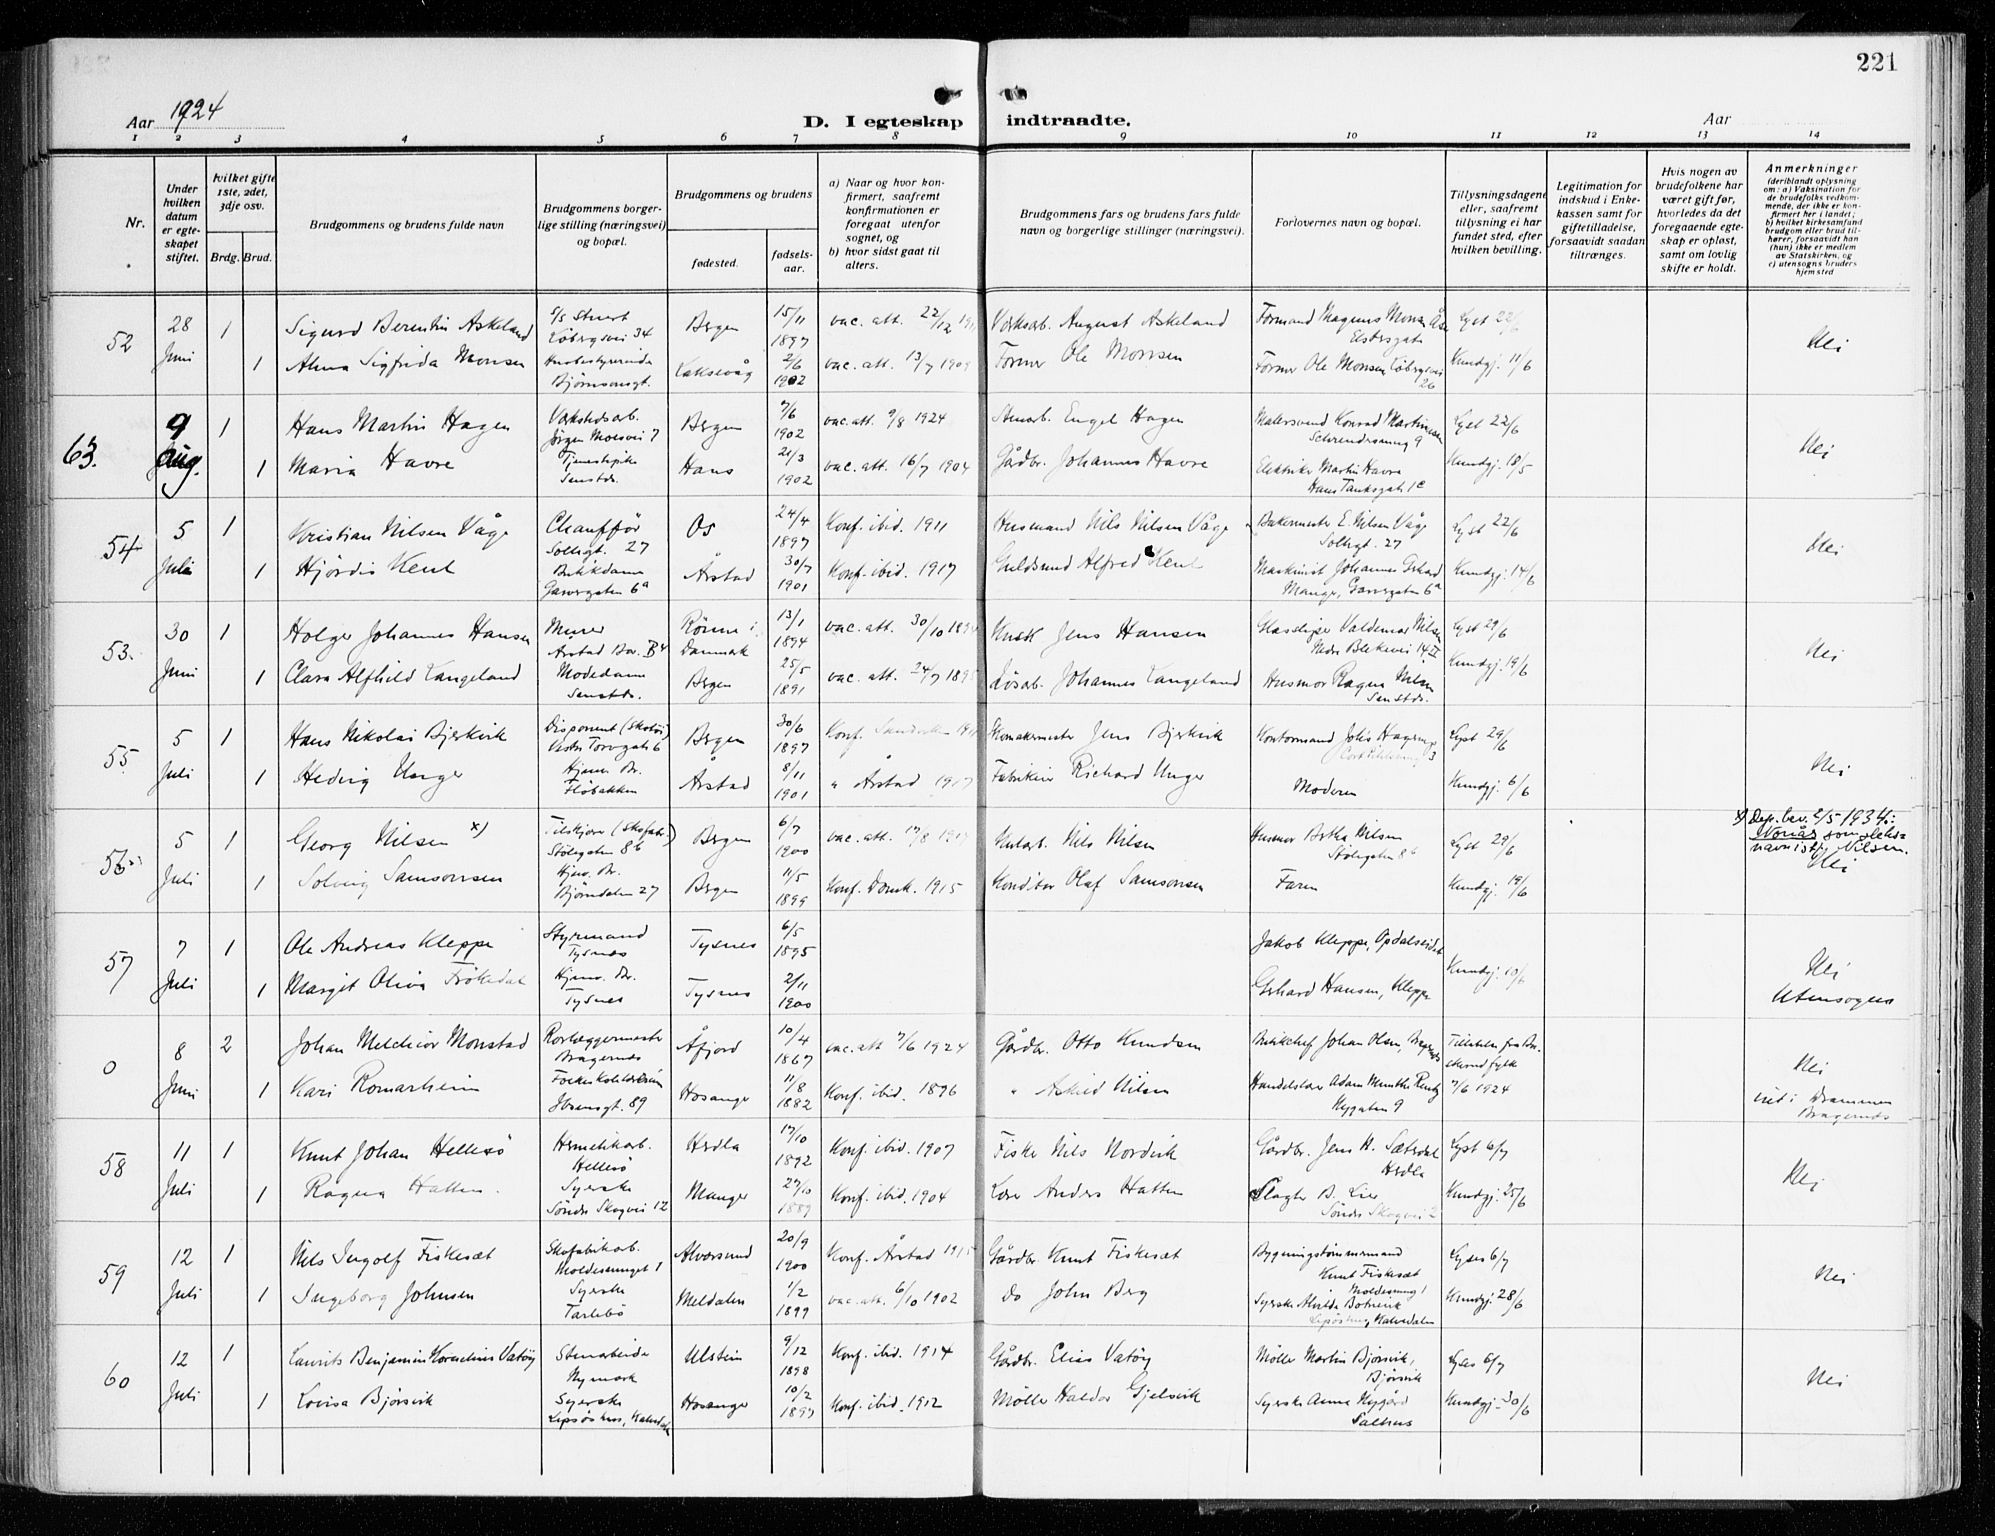 221
Aar 1924
D. I egteskap indtraadte.
Aar
1 2 3 4 5 6 7 8 9 10 11 12 13 14
Nr.
Under hvilken datum er egteskapet stiftet.
Hvilket gifte 1ste, 2det, 3dje osv.
Brdg. Brud.
Brudgommens og brudens fulde navn
Brudgommens borgerlige stilling (næringsvei) og bopæl.
Brudgommens og brudens
fødested.
fødselsaar.
a) Naar og hvor konfirmert, saafremt konfirmationen er foregaat utenfor sognet, og
b) hvor sidst gaat til alters.
Brudgommens fars og brudens fars fulde navn og borgerlige stillinger (næringsvei).
Forlovernes navn og bopæl.
Tillysningsdagene eller, saafremt tillysning ei har fundet sted, efter hvilken bevilling.
Legitimation for indskud i Enkekassen samt for giftetilladelse, forsaavidt saadan tiltrænges.
Hvis nogen av brudefolkene har været gift før, hvorledes da det foregaaende egteskap er opløst, samt om lovlig skifte er holdt.
Anmerkninger
(deriblandt oplysning om: a) Vaksination for de brudefolks vedkommende, der ikke er konfirmert her i landet; b) hvilket kirkesamfund brudgom eller brud tilhører, forsaavidt han (hun) ikke er medlem av Statskirken, og c) utensogns bruders hjemsted
52 28 1 Sigurd Berentin Askeland Bergen 15/11 1897 vac. att. 22/12 Verksab. August Askeland Formand Magnus Monsen Lyst 22/6
Juni 1 Alma Sigfrida Monsen Bjørnsonsgt. Laksevåg 2/6 1902 vac. att. 13/7 1909 Former Ole Monsen Former Ole Monsen Kundgj. 11/6 Nei
63. 9 1 Hans Martin Hagen Verkstedsarb. Jørgen Moesvei 7 Bergen 7/6 1902 vac. att. 9/8 1924 Engel Hagen Malersvend Konrad Martinsen Lyst 22/6
Aug. 1 Maria Havre Tjenestepike Samstds. Hans 21/3 1902 vac. att. 16/7 1904 Gårdbr. Johannes Havre Elektriker Martin Havre Hans Tanksgate 1c Kundgj. 18/5 Nei
54 5 1 Kristian Nilsen Våge Chauffør Solhgt. 27 Os 24/4 1897 Konf. ibid. 1911 Husmand Nils Nilsen Våge Bakermester E. Nilsen Våge Solhgt. 27 Lyst 22/6
Juli 1 Hjørdis Kent Butikdame 6a Årstad 30/7 1901 Konf. ibid. 1917 Guldsmed Alfred Kent Maskinist Johannes Gerhard Mange, 6a Kundgj. 14/6 Nei
53. 30 1 Holger Johannes Hansen Murer Årstad Rønne i Danmark 13/1 1894 vac. att. 30/10 Kusk Jens Hansen Glassliper Valdemar Nilsen Lyst 29/6
Juni 1 Clara Alfhild Langeland Modedame Samstds. Bergen 25/5 1891 vac. att. 24/7 Løsarb. Johannes Langeland Husmor Ragna Nilsen Samstds. Kundgj. 19/6 Nei
55. 5 1 Hans Nikolai Bjerkvik Disponent Vestre Torvgate 6 Bergen 30/6 1897 Konf. Sandviken Jens Bjerkvik Kontormand Johs Hagerup Lyst 29/6
Juli 1 Hedvig Unger Hjem. Br. Fløbakken Årstad 8/11 1901 " Årstad 1917 Fabrikeier Richard Unger Moderen Kundgj. 6/6 Nei
56 5 1 Georg Nilsen x) Tilskjærer (Skofabr.) Stølegaten 8b Bergen 6/7 1900 vac. att. 17/8 Nils Nilsen Husmor Bertha Nilsen Stølegaten 8b Lyst 29/6
x) Dep. bev. 2/5-1934: Nonås som slektsnavn istf. Nilsen.
Juli 1 Solveig Samsonsen Hjem. Br. Bjørndalen 27 Bergen 11/5 1899 Konf. Domk. 1915 Konditor Olaf Samsonsen Faren Kundgj. 19/6 Nei
57 7 1 Ole Andreas Kleppe Styrmand Tysnes Tysnes 6/5 1895 Jakob Kleppe, Opdalseidet
Juli 1 Margit Olivia Frøkedal Hjem. Br. Tysnes Tysnes 2/11 1900 Gerhard Hansen, Kleppe Kundgj. 10/6 Nei Utensogns
0 8 2 Johan Melchior Monstad Rørlæggermester Bragernes Åfjord 10/4 1867 vac. att. 7/6 1924 Gårdbr. Otto Knudsen Butikchef Johan Olsen, Tillatelse fra Buskerud fylke
Juni 1 Kari Romarheim Ibsensgt. 89 Hosanger 11/8 1882 Konf. ibid. 1896 " Askild Nilsen Handelsbor Adam Munthe Nygaten 9 7/6 1924 Nei viet i Drammen Bragernes
58 11 1 Knut Johan Hellesø Hermetikarb. Hellesø Herdla 17/10 1892 Konf. ibid. 1907 Fisker Nils Nordvik Gårdbr. Jens H. Sætredal Herdla Lyst 6/7
Juli 1 Ragna Hatten. Syerske Søndre Skogvei 12 Manger 27/10 1889 Konf. ibid. 1904 Lærer Anders Hatten Slagter B. Lier Søndre Skogvei 2 Kundgj. 25/6 Nei
59 12 1 Nils Ingolf Fiskesæt Skofabrikarb. Alversund 20/9 1900 Konf. Årstad Gårdbr. Knut Fiskesæt Bygningstømmermand Knut Fiskesæt Lyses 6/7
Juli 1 Ingeborg Johnsen Syerske Tarlebø Meldalen 1/2 1899 vac. att. 6/10 1902 do John Berg Syerske Alvilde Botnevik Kalvedalen Kundgj. 28/6 Nei
60 12 1 Laurits Benjamin Kornelius Vatøy Stenarbeider Nymark Ulstein 9/12 1898 Konf. ibid. 1914 Gårdbr. Elias Vatøy Møller Martin Bjørsvik, Bjørsvik Lyses 6/7
Juli 1 Lovisa Bjørsvik Syerske Hosanger 10/2 1897 Konf. ibid. 1912 Møller Haldor Gjelsvik Syerske Anna Nygård Salhus Kundgj. 30/6 Nei